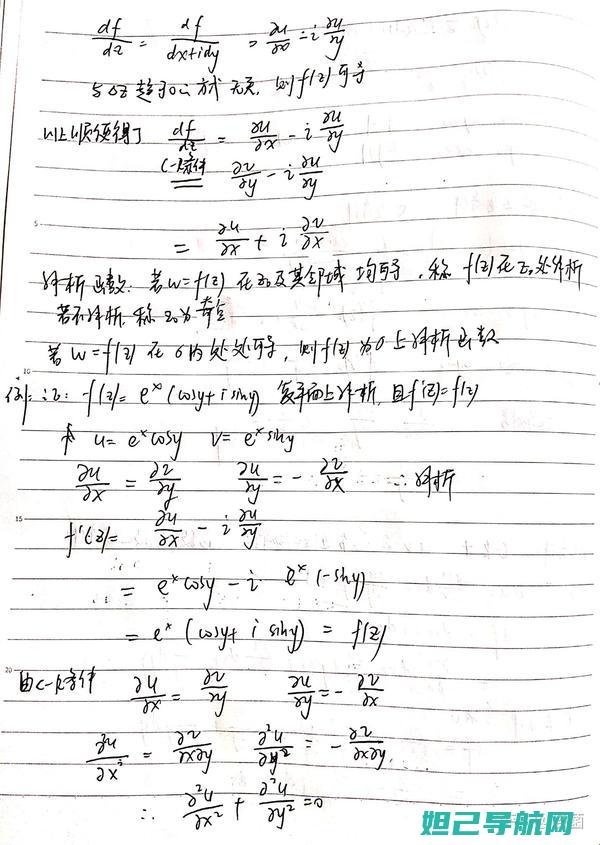 df/dz = df/dx+idy = ∂u/∂x - i ∂u/∂y
与Δz趋于0的方式无关, 则f(z)可导
以上顺便得了 df/dz = ∂u/∂x - i ∂u/∂y
C-R条件 ∂v/∂y - i ∂u/∂y
5
= ∂u/∂x + i ∂v/∂x
解析函数: 若w=f(z) 在z₀及其邻域 均可导, 称 f(z)在z₀处解析
若不解析, 称z₀为奇点
若 w=f(z) 在σ内处处可导, 则f(z)为σ上解析函数
10
例: 证: f(z)= eˣ(cosy+i siny) 复平面上解析, 且f'(z)=f(z)
u= eˣcosy v= eˣsiny
∂u/∂x = ∂v/∂y ∂u/∂y = - ∂v/∂x ∴解析
15
f'(z)= ∂u/∂x - i ∂u/∂y
= eˣcosy - i eˣ(-siny)
= eˣ(cosy+ i siny) = f(z)
20
由C-R条件 ∂u/∂x = ∂v/∂y ∂u/∂y = - ∂v/∂x
∂²u/∂x² = ∂v/∂x∂y ∂²u/∂y² = - ∂v/∂x∂y
∴ ∂²u/∂x² + ∂²u/∂y² =0
妲己导航网